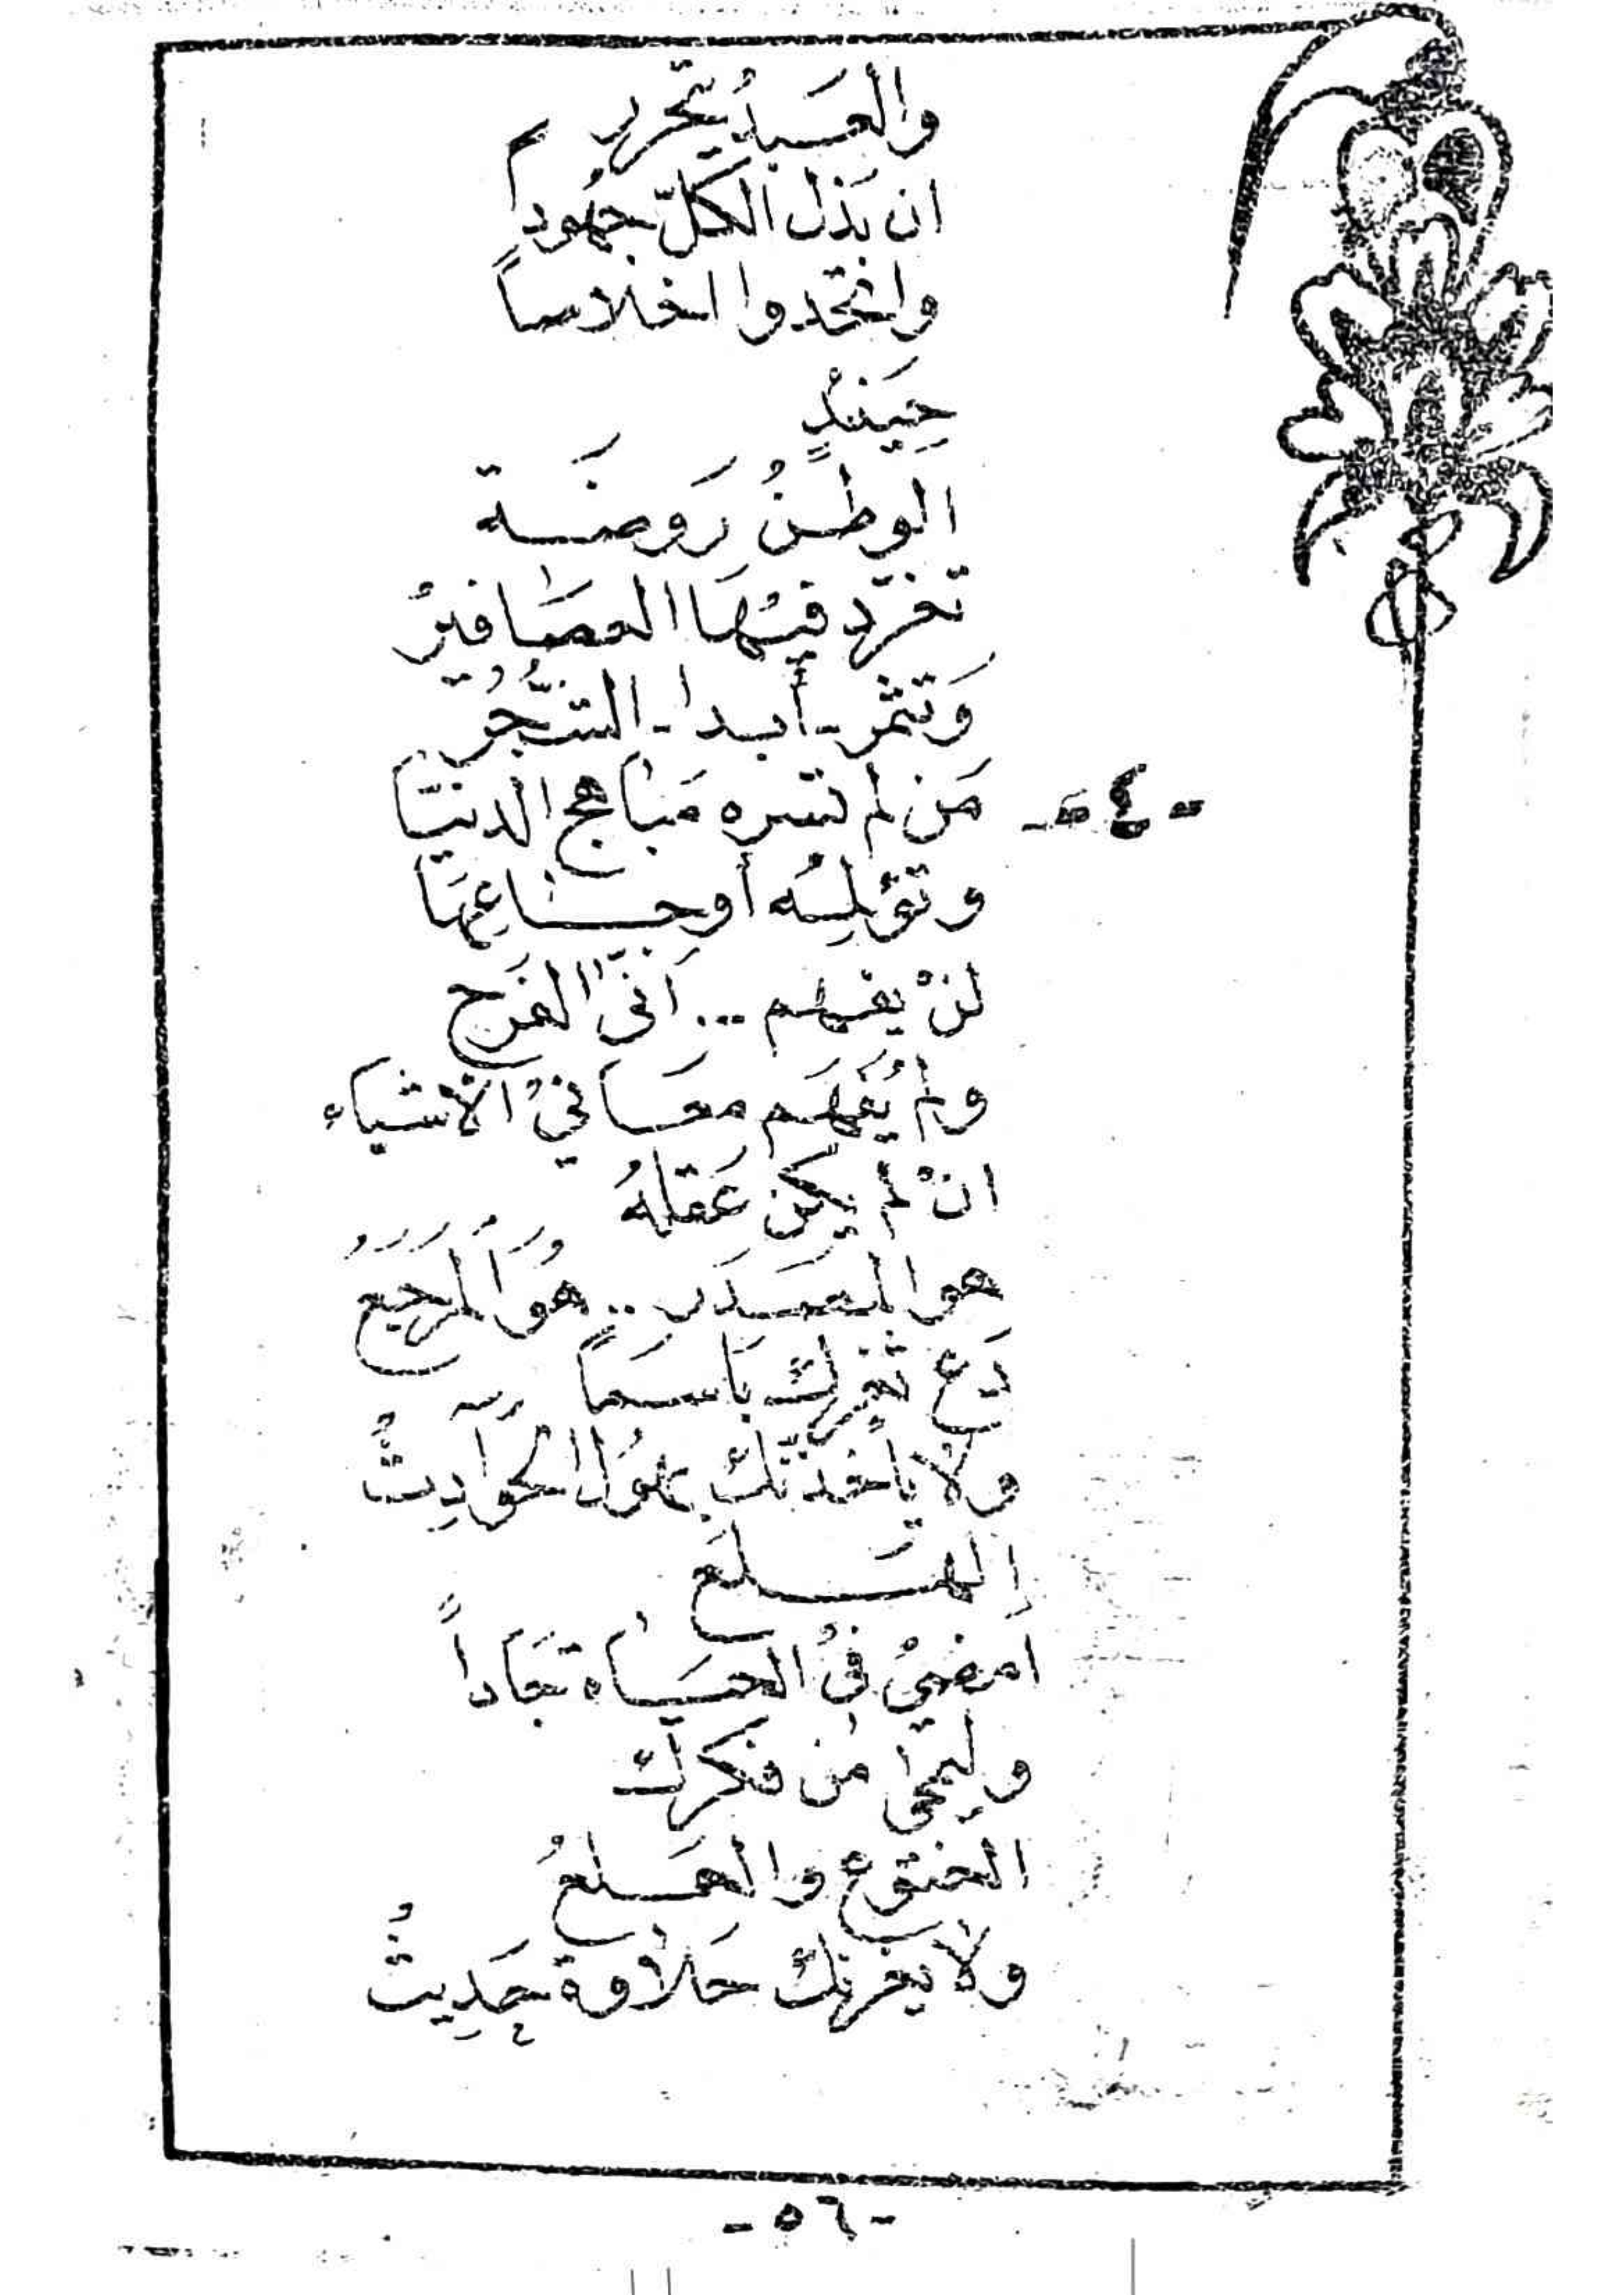 والعَبدُ يتحرر
ان بَذل الكلّ جهُوداً
واتحدوا اخلاصاً
حِينئذٍ
الوطنُ رَوضَة
تغرّد فيْهَا العصَافيرُ
وَتثمر - أبدا - الشّجُر
-٤-
مَن لم تسره مَباهج الدنيَّا
وتؤلمِه أوجَاعهَا
لنْ يفهم .. أنّى الفرَج
ولم يُفهَم معَانيْ الأشياء
انْ لم يكن عَقلهُ
هو المصدَر .. هوَ المرَجَعُ
دَع ثغرك بَاسمَاً
ولا يأخذنّك بهوُل الحوَادِثُ
الهَلَع
امضيْ فيْ الحيَاة تجَاداً
وليمحَى من فكرك
الخنوع والهَلعُ
ولا يغرنك حَلاوة حَدِيثُ
-٥٦-